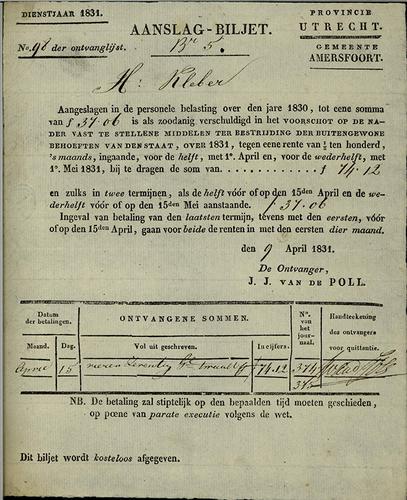 DIENSTJAAR 1831.
AANSLAG-BILJET.
PROVINCIE
UTRECHT.
No. 98 der ontvanglijst.
GEMEENTE
AMERSFOORT.
H: Kleber
Aangeslagen in de personele belasting over den jare 1830, tot eene somma
van f 37.06 is als zoodanig verschuldigd in het VOORSCHOT OP DE NA-
DER VAST TE STELLENE MIDDELEN TER BESTRIJDING DER BUITENGEWONE
BEHOEFTEN VAN DEN STAAT, over 1831, tegen eene rente van ½ ten honderd,
's maands, ingaande, voor de helft, met 1e. April en, voor de wederhelft, met
1e. Mei 1831, bij te dragen de som van . . . . . . . . . . . f 74.12
en zulks in twee termijnen, als de helft vóór of op den 15den April en de we-
derhelft vóór of op den 15den Mei aanstaande. f 37.06
Ingeval van betaling van den laatsten termijn, tevens met den eersten, vóór
of op den 15den April, gaan voor beide de renten in met den eersten dier maand.
den 9 April 1831.
De Ontvanger,
J. J. VAN DE POLL.
Datum der betalingen.
ONTVANGENE SOMMEN.
No. van het jour- naal.
Handteekening des ontvangers voor quittantie.
Maand. Dag. Vol uit geschreven. In cijfers.
April 15 74.12 374
375
NB. De betaling zal stiptelijk op den bepaalden tijd moeten geschieden,
op pœne van parate executie volgens de wet.
Dit biljet wordt kosteloos afgegeven.